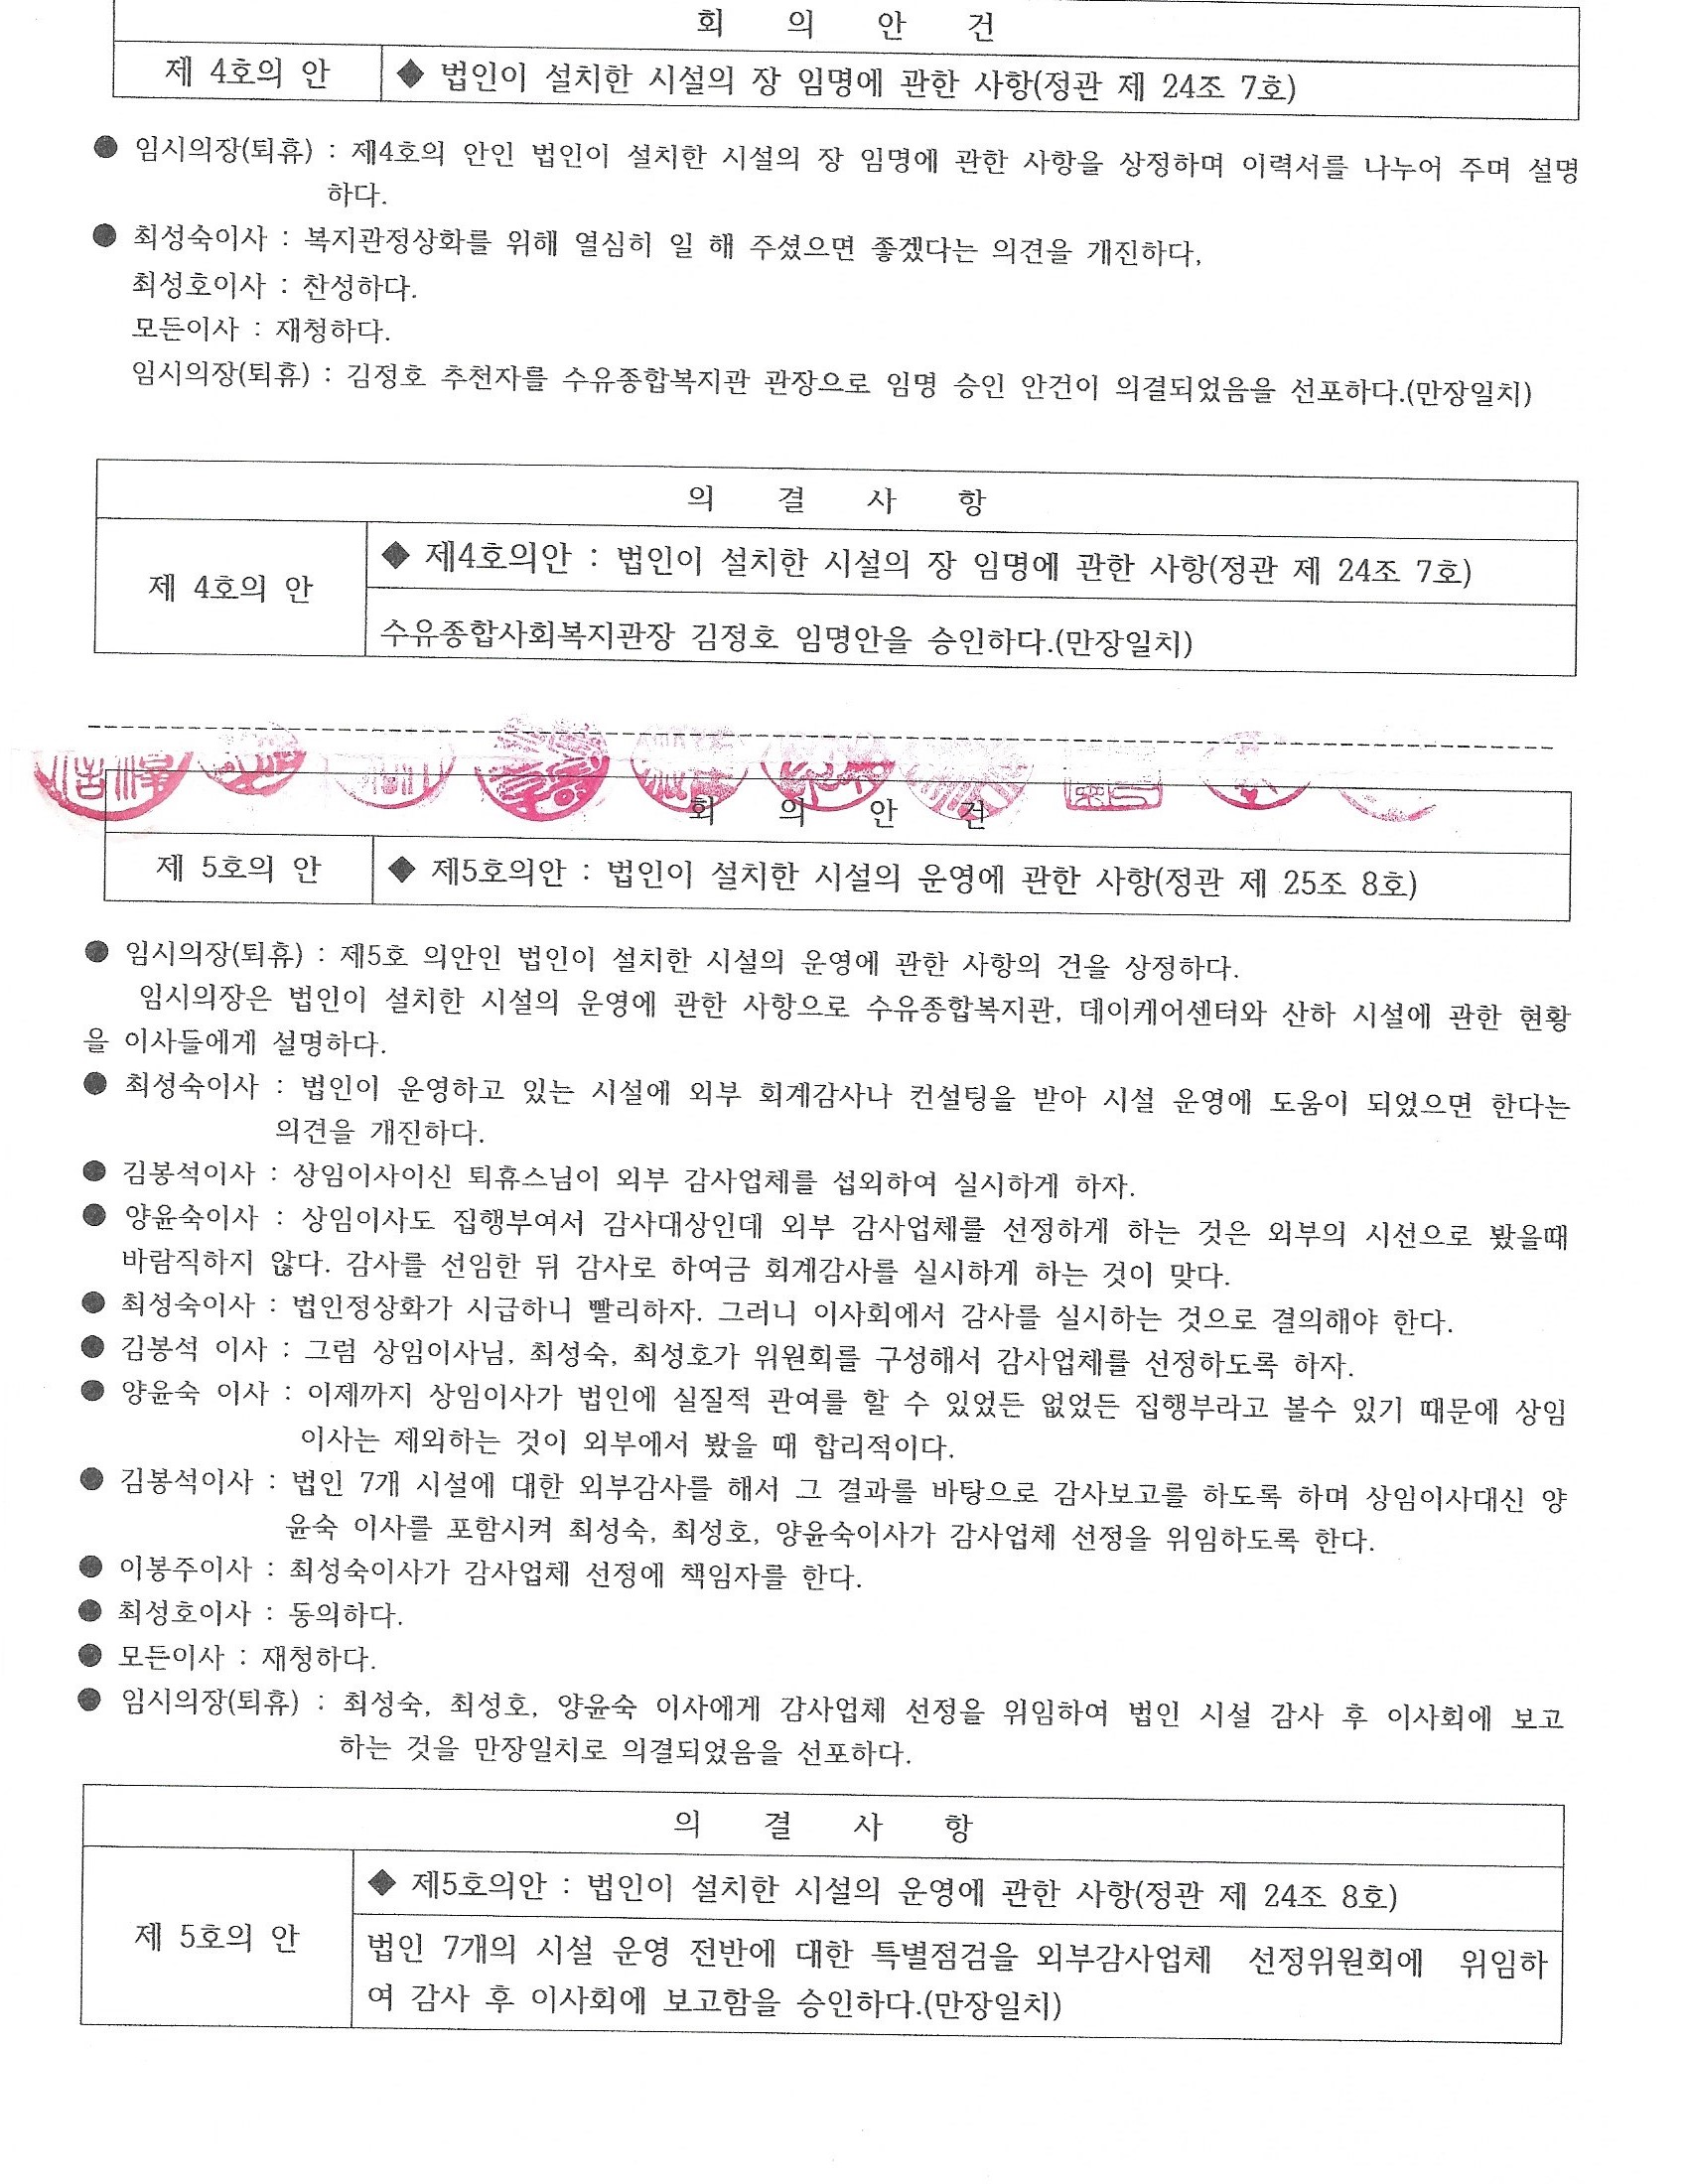 회 의 안 건
제 4호의 안 ◆ 법인이 설치한 시설의 장 임명에 관한 사항(정관 제 24조 7호)
● 임시의장(퇴휴) : 제4호의 안인 법인이 설치한 시설의 장 임명에 관한 사항을 상정하며 이력서를 나누어 주며 설명
하다.
● 최성숙이사 : 복지관정상화를 위해 열심히 일 해 주셨으면 좋겠다는 의견을 개진하다,
최성호이사 : 찬성하다.
모든이사 : 재청하다.
임시의장(퇴휴) : 김정호 추천자를 수유종합복지관 관장으로 임명 승인 안건이 의결되었음을 선포하다.(만장일치)
의 결 사 항
제 4호의 안
◆ 제4호의안 : 법인이 설치한 시설의 장 임명에 관한 사항(정관 제 24조 7호)
수유종합사회복지관장 김정호 임명안을 승인하다.(만장일치)
회 의 안 건
제 5호의 안 ◆ 제5호의안 : 법인이 설치한 시설의 운영에 관한 사항(정관 제 25조 8호)
● 임시의장(퇴휴) : 제5호 의안인 법인이 설치한 시설의 운영에 관한 사항의 건을 상정하다.
임시의장은 법인이 설치한 시설의 운영에 관한 사항으로 수유종합복지관, 데이케어센터와 산하 시설에 관한 현황
을 이사들에게 설명하다.
● 최성숙이사 : 법인이 운영하고 있는 시설에 외부 회계감사나 컨설팅을 받아 시설 운영에 도움이 되었으면 한다는
의견을 개진하다.
● 김봉석이사 : 상임이사이신 퇴휴스님이 외부 감사업체를 섭외하여 실시하게 하자.
● 양윤숙이사 : 상임이사도 집행부여서 감사대상인데 외부 감사업체를 선정하게 하는 것은 외부의 시선으로 봤을때
바람직하지 않다. 감사를 선임한 뒤 감사로 하여금 회계감사를 실시하게 하는 것이 맞다.
● 최성숙이사 : 법인정상화가 시급하니 빨리하자. 그러니 이사회에서 감사를 실시하는 것으로 결의해야 한다.
● 김봉석 이사 : 그럼 상임이사님, 최성숙, 최성호가 위원회를 구성해서 감사업체를 선정하도록 하자.
● 양윤숙 이사 : 이제까지 상임이사가 법인에 실질적 관여를 할 수 있었든 없었든 집행부라고 볼수 있기 때문에 상임
이사는 제외하는 것이 외부에서 봤을 때 합리적이다.
● 김봉석이사 : 법인 7개 시설에 대한 외부감사를 해서 그 결과를 바탕으로 감사보고를 하도록 하며 상임이사대신 양
윤숙 이사를 포함시켜 최성숙, 최성호, 양윤숙이사가 감사업체 선정을 위임하도록 한다.
● 이봉주이사 : 최성숙이사가 감사업체 선정에 책임자를 한다.
● 최성호이사 : 동의하다.
● 모든이사 : 재청하다.
● 임시의장(퇴휴) : 최성숙, 최성호, 양윤숙 이사에게 감사업체 선정을 위임하여 법인 시설 감사 후 이사회에 보고
하는 것을 만장일치로 의결되었음을 선포하다.
의 결 사 항
제 5호의 안
◆ 제5호의안 : 법인이 설치한 시설의 운영에 관한 사항(정관 제 24조 8호)
법인 7개의 시설 운영 전반에 대한 특별점검을 외부감사업체 선정위원회에 위임하
여 감사 후 이사회에 보고함을 승인하다.(만장일치)